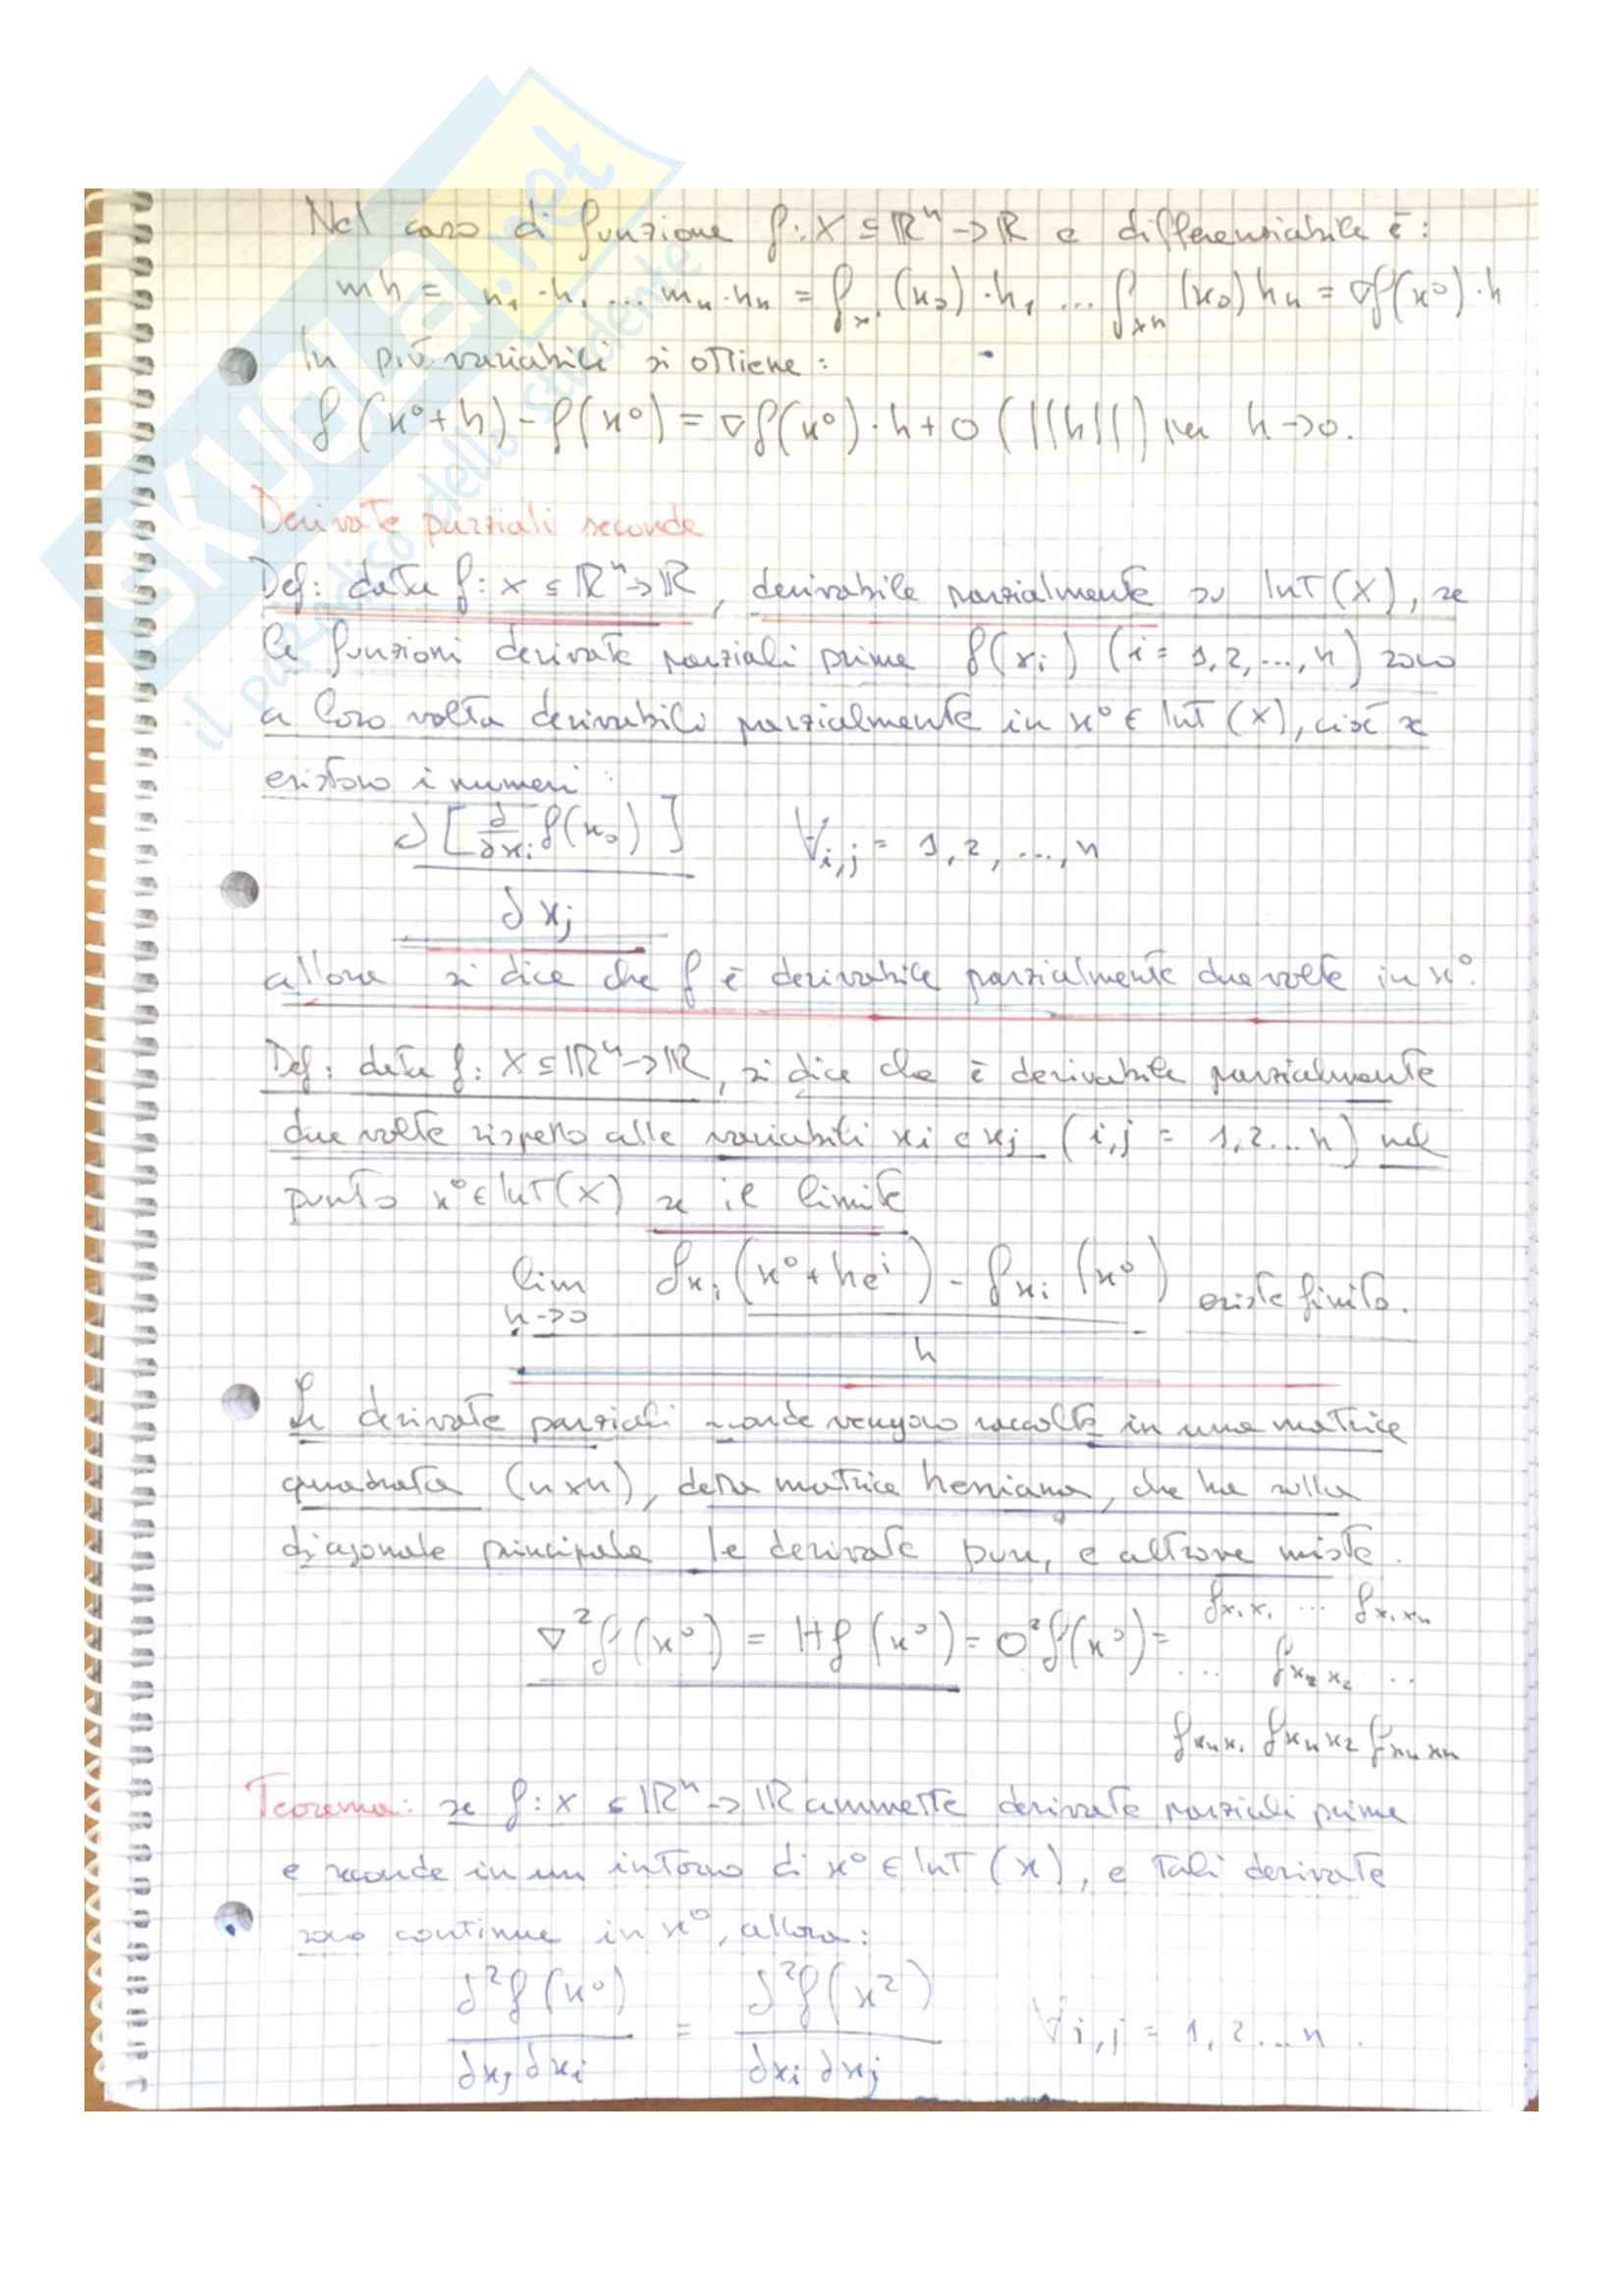 SKUOLA.net
il paradiso dello studente
Nel caso di funzione f: X ⊆ ℝⁿ → ℝ e differenziabile è:
mh = m₁·h₁ ... mₙ·hₙ = fₓ₁(x₀)·h₁ ... fₓₙ(x₀)hₙ = ∇f(x⁰)·h
In più variabili si ottiene:
f(x⁰+h) - f(x⁰) = ∇f(x⁰)·h + o(||h||) per h→0.
Derivate parziali seconde
Def: data f: X ⊆ ℝⁿ → ℝ, derivabile parzialmente su Int(X), se
le funzioni derivate parziali prime f(xi) (i = 1, 2, ..., n) sono
a loro volta derivabili parzialmente in x⁰ ∈ Int(X), cioè se
esistono i numeri:
∂[∂/∂xi f(x₀)] ∀i,j = 1, 2, ..., n
∂xj
allora si dice che f è derivabile parzialmente due volte in x⁰.
Def: data f: X ⊆ ℝⁿ → ℝ, si dice che è derivabile parzialmente
due volte rispetto alle variabili xi e xj (i,j = 1,2...n) nel
punto x⁰ ∈ Int(X) se il limite
lim fxi(x⁰+heⁱ) - fxi(x⁰) esiste finito.
h→0
h
Le derivate parziali seconde vengono raccolte in una matrice
quadrata (n×n), detta matrice hessiana, che ha sulla
diagonale principale le derivate pure, e altrove miste.
∇²f(x⁰) = Hf(x⁰) = D²f(x⁰) = fx₁x₁ ... fx₁xₙ
... fx₂x₂ ..
fxₙx₁ fxₙx₂ fxₙxₙ
Teorema: se f: X ⊆ ℝⁿ → ℝ ammette derivate parziali prime
e seconde in un intorno di x⁰ ∈ Int(x), e tali derivate
sono continue in x⁰, allora:
∂²f(x⁰) = ∂²f(x²) ∀i,j = 1, 2...n.
∂xj ∂xi ∂xi ∂xj